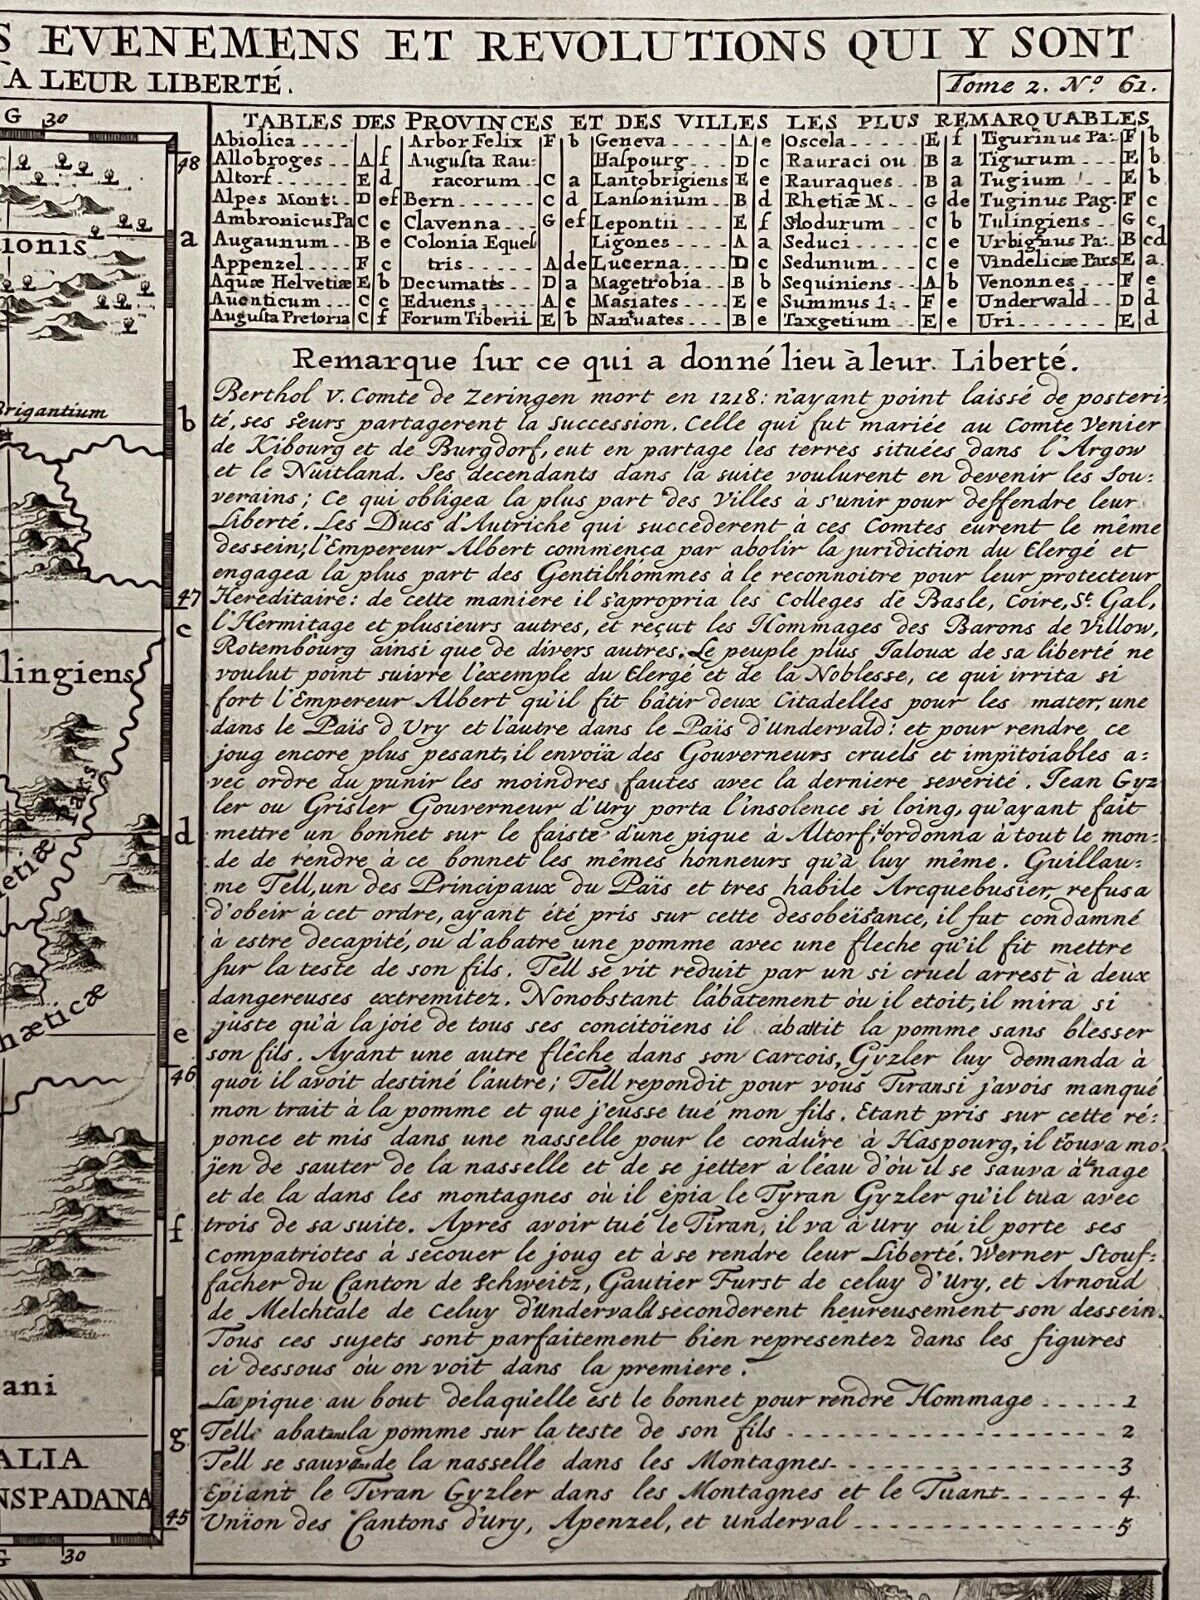 S EVENEMENS ET REVOLUTIONS QUI Y SONT
A LEUR LIBERTÉ.
Tome 2. N.º 61.
G 30
48
a
ionis
Brigantium
b
47
c
lingiens
d
etiæ Pars
hæticæ
e
46
f
ani
g
ALIA
NSPADANA
45
G 30
TABLES DES PROVINCES ET DES VILLES LES PLUS REMARQUABLES
Abiolica
Allobroges A f
Altorf E d
Alpes Mont: D ef
Ambronicus Pa C c
Augaunum B e
Appenzel F c
Aquæ Helvetiæ E b
Auenticum C c
Augusta Pretoria C f
Arbor Felix F b
Augusta Rau:
racorum C a
Bern C d
Clavenna G ef
Colonia Eques
tris A de
Decumates D a
Eduens A c
Forum Tiberii E b
Geneva A e
Haspourg D c
Lantobrigiens E e
Lansonium B d
Lepontii E f
Ligones A a
Lucerna D c
Magetrobia B b
Masiates E e
Nantuates B e
Oscela E f
Rauraci ou B a
Rauraques B a
Rhetiæ M G de
Slodurum C b
Seduci C e
Sedunum C e
Sequiniens A b
Summus l: F e
Taxgetium E e
Tigurinus Pa: F b
Tigurum E b
Tugium E b
Tuginus Pag: F c
Tulingiens G c
Urbignus Pa: B cd
Vindeliciæ Pars E a
Venonnes F e
Underwald D d
Uri E d
Remarque sur ce qui a donné lieu à leur Liberté.
Berthol V. Comte de Zeringen mort en 1218: n'ayant point laissé de posteri-
té, ses sœurs partagerent la succession. Celle qui fut mariée au Comte Venier
de Kibourg et de Burgdorf, eut en partage les terres situées dans l'Argow
et le Nuitland. Ses decendants dans la suite voulurent en devenir les Sou-
verains; Ce qui obligea la plus part des Villes à s'unir pour deffendre leur
Liberté. Les Ducs d'Autriche qui succederent à ces Comtes eurent le même
dessein; l'Empereur Albert commença par abolir la juridiction du Clergé et
engagea la plus part des Gentilhommes à le reconnoitre pour leur protecteur
Hereditaire: de cette maniere il s'apropria les Colleges de Basle, Coire, St. Gal,
l'Hermitage et plusieurs autres, et reçut les Hommages des Barons de Villow,
Rotembourg ainsi que de divers autres. Le peuple plus Jaloux de sa liberté ne
voulut point suivre l'exemple du Clergé et de la Noblesse, ce qui irrita si
fort l'Empereur Albert qu'il fit bâtir deux Citadelles pour les mater, une
dans le Païs d'Ury et l'autre dans le Païs d'Undervald: et pour rendre ce
joug encore plus pesant, il envoïa des Gouverneurs cruels et impitoiables a-
vec ordre du punir les moindres fautes avec la derniere severité. Jean Gyz
ler ou Grisler Gouverneur d'Ury porta l'insolence si loing, qu'ayant fait
mettre un bonnet sur le faiste d'une pique à Altorf, l'ordonna à tout le mon-
de de rendre à ce bonnet les mêmes honneurs qu'à luy même. Guillau-
me Tell, un des Principaux du Païs et tres habile Arcquebusier, refusa
d'obeir à cet ordre, ayant été pris sur cette desobeïssance, il fut condamné
à estre decapité, ou d'abatre une pomme avec une fleche qu'il fit mettre
sur la teste de son fils. Tell se vit réduit par un si cruel arrest à deux
dangereuses extremitez. Nonobstant l'abatement où il etoit, il mira si
juste qu'à la joie de tous ses concitoïens il abattit la pomme sans blesser
son fils. Ayant une autre flêche dans son Carcois, Gyzler luy demanda à
quoi il avoit destiné l'autre; Tell repondit pour vous Tiran si j'avois manqué
mon trait à la pomme et que j'eusse tué mon fils. Etant pris sur cette ré-
ponce et mis dans une nasselle pour le conduire à Haspourg, il touva mo-
ïen de sauter de la nasselle et de se jetter à l'éau d'où il se sauva à la nage
et de la dans les montagnes où il épia le Tyran Gyzler qu'il tua avec
trois de sa suite. Apres avoir tué le Tiran, il va à Ury ou il porte ses
Compatriotes à sécouer le joug et à se rendre leur Liberté. Werner Stouf-
facher du Canton de Schweitz, Gautier Furst de celuy d'Ury, et Arnoud
de Melchtale de Celuy d'Undervald seconderent heureusement son dessein.
Tous ces sujets sont parfaitement bien representez dans les figures
ci dessous où on voit dans la premiere.
La pique au bout de laquelle est le bonnet pour rendre Hommage ..... 1
Tell abatant la pomme sur la teste de son fils ..... 2
Tell se sauvant de la nasselle dans les Montagnes ..... 3
Epiant le Tyran Gyzler dans les Montagnes et le Tuant ..... 4
Union des Cantons d'ury, Apenzel, et underval ..... 5